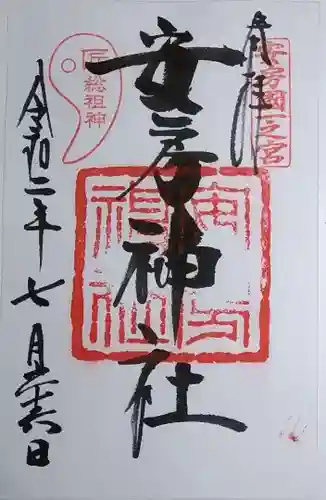 奉拝
安房國一之宮
安房神社
安房神社
匠総祖神
令和二年七月二十六日